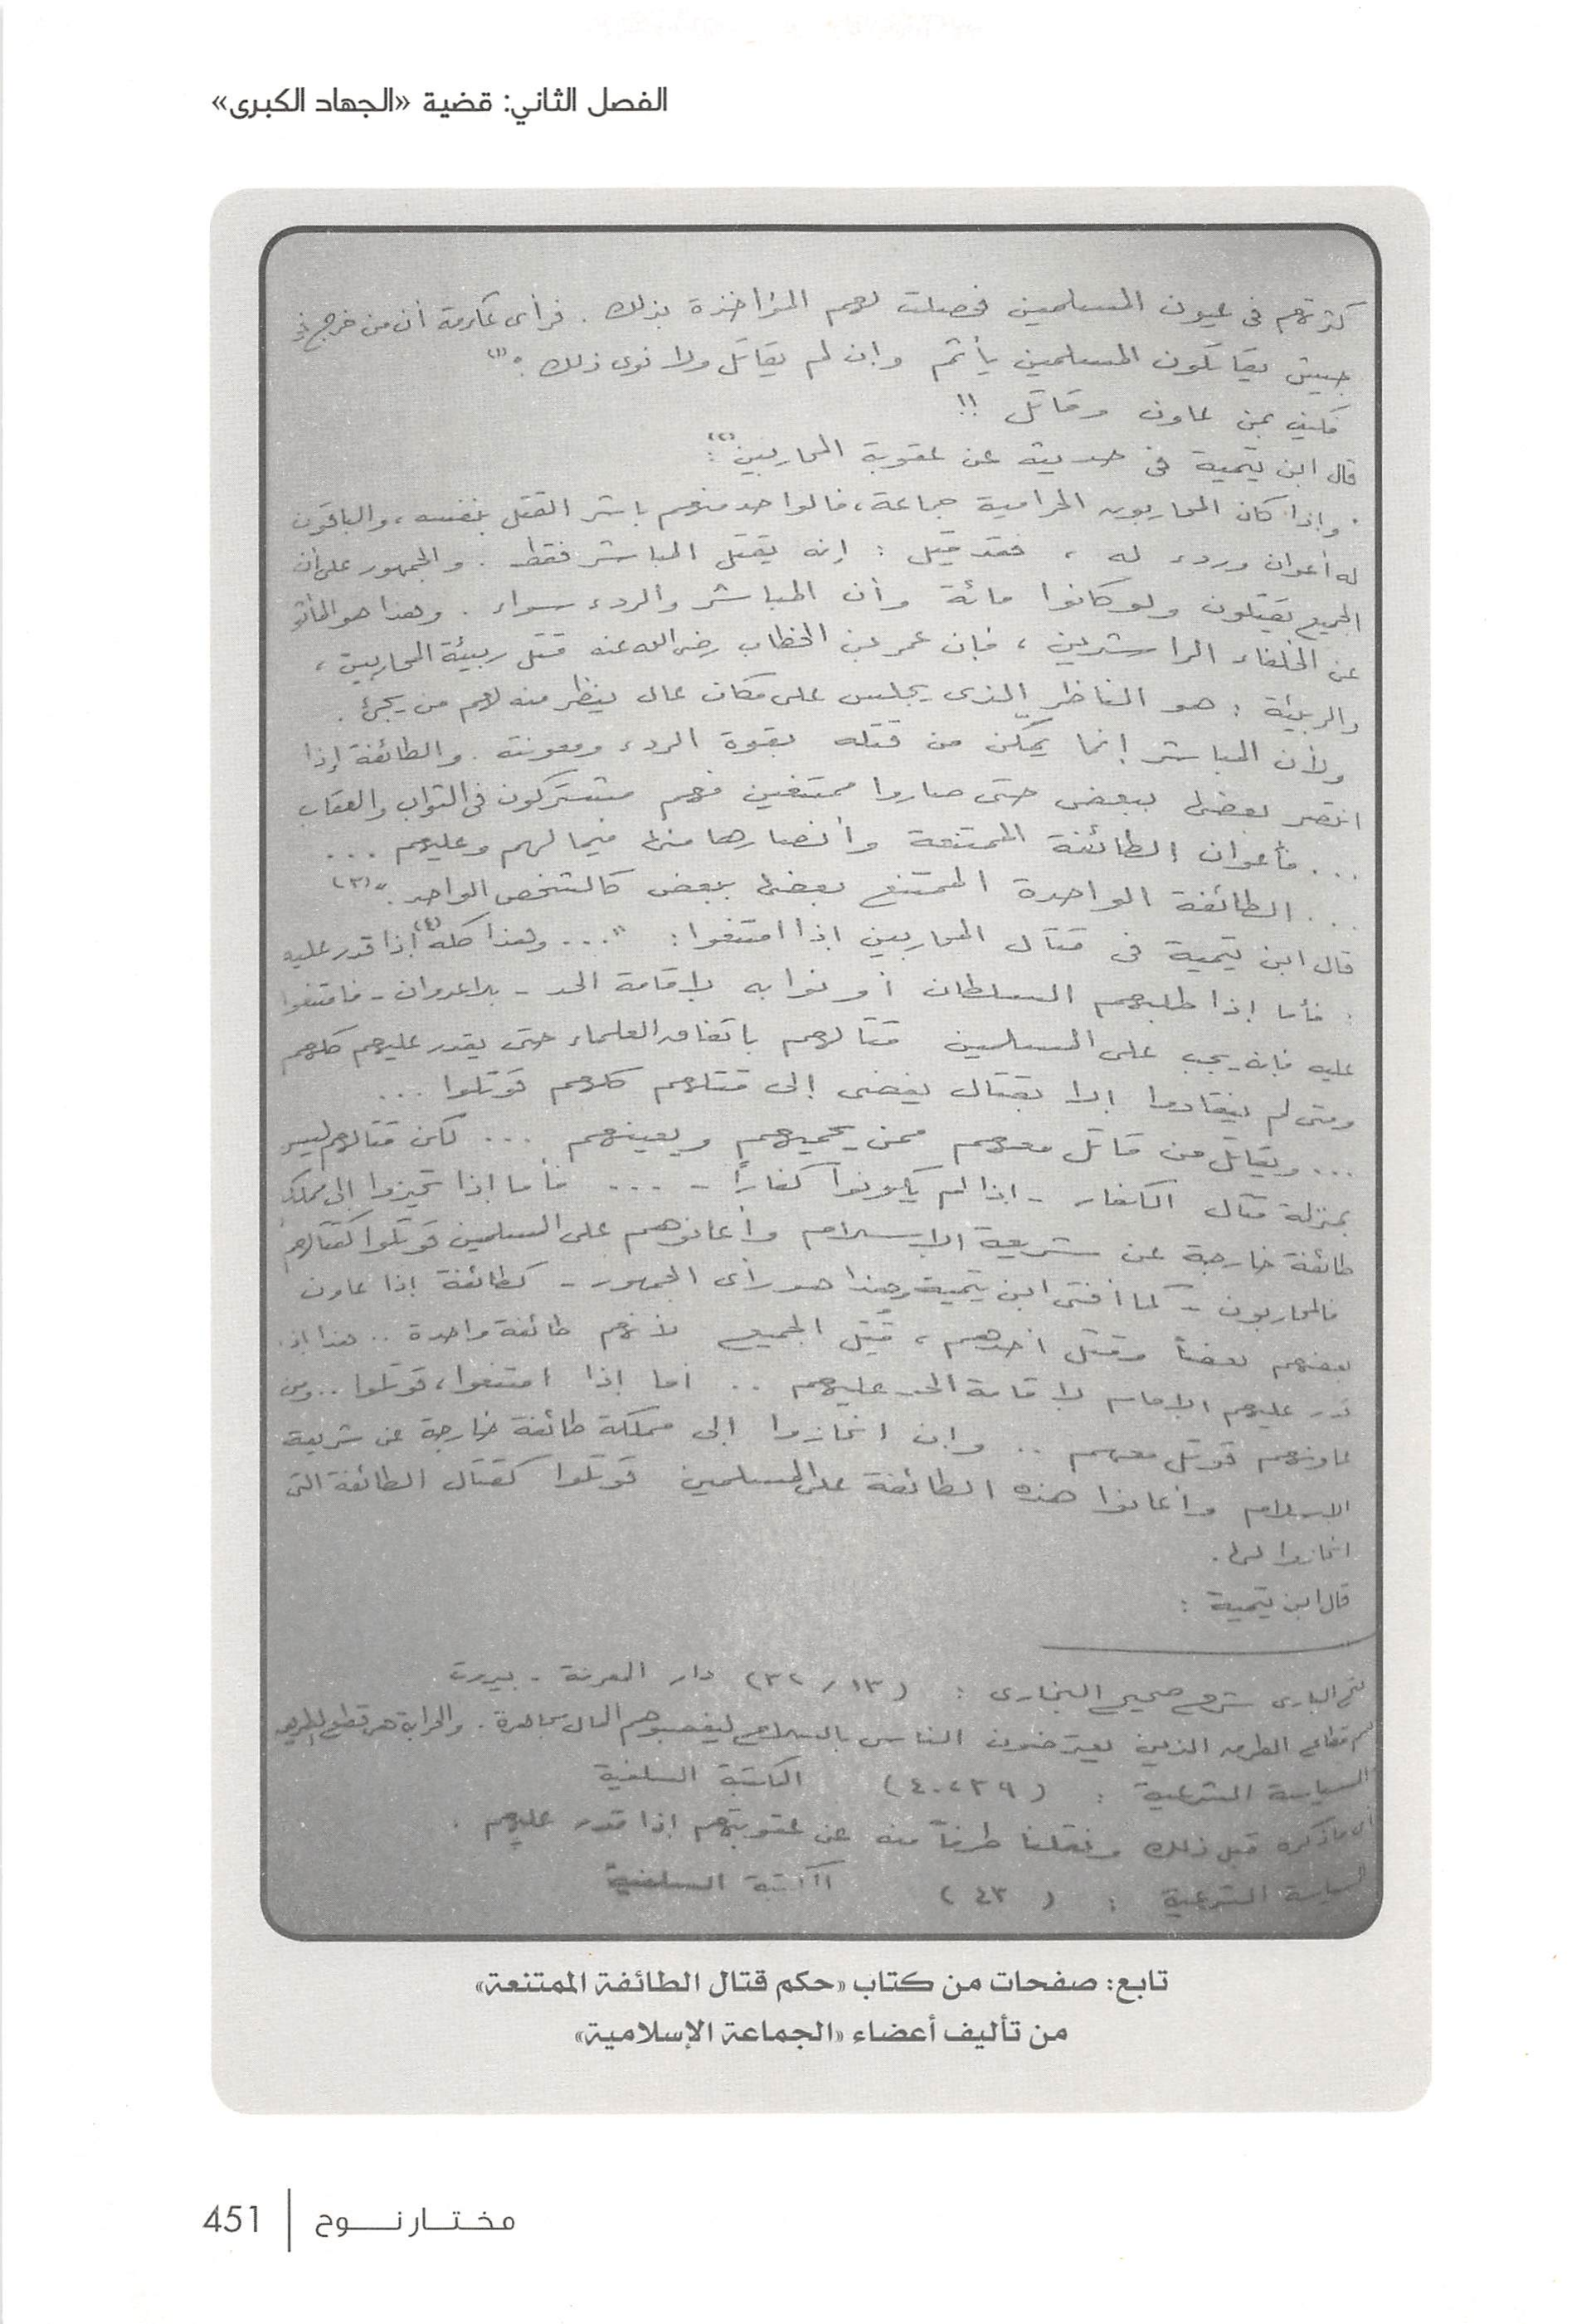 الفصل الثاني: قضية «الجهاد الكبرى»
كثرتهم فى عيون المسلمين فحصلت لهم المؤاخذة بذلك . فرأى عكرمة أن من خرج فى
جيش يقاتلون المسلمين يأثم وإن لم يقاتل ولا نوى ذلك . " (١)
فكيف بمن عاون وقاتل !!
قال ابن تيمية فى حديثه عن عقوبة المحاربين (٢):
" وإذا كان المحاربون الحرامية جماعة، فالواحد منهم باشر القتل بنفسه، والباقون
له أعوان وردء له ، فقد قيل : إنه يقتل المباشر فقط . والجمهور على أن
الجميع يقتلون ولو كانوا مائة وأن المباشر والردء سواء . وهذا هو المأثور
عن الخلفاء الراشدين ، فإن عمر بن الخطاب رضى الله عنه قتل ربيئة المحاربين ،
والربيئة : هو الناظر الذى يجلس على مكان عال ينظر منه لهم من يجئ .
ولأن المباشر إنما يمكّن من قتله بقوة الردء ومعونته . والطائفة إذا
انتصر بعضها ببعض حتى صاروا ممتنعين فهم مشتركون فى الثواب والعقاب
... فأعوان الطائفة الممتنعة وأنصارها منها فيما لهم وعليهم ...
... الطائفة الواحدة الممتنع بعضها ببعض كالشخص الواحد . " (٣)
قال ابن تيمية فى قتال المحاربين إذا امتنعوا : " ... وهذا كله (٤) إذا قدر عليهم
: فأما إذا طلبهم السلطان أو نوابه لإقامة الحد - بلا عدوان - فامتنعوا
عليه فإنه يجب على المسلمين قتالهم باتفاق العلماء حتى يقدر عليهم كلهم
ومتى لم ينقادوا إلا بقتال يفضى إلى قتلهم كلهم قوتلوا ...
... ويقاتل من قاتل معهم ممن يحميهم ويعينهم ... لكن قتالهم ليس
بمنزلة قتال الكفار - إذا لم يكونوا كفاراً - ... فأما إذا تحيزوا إلى مملكة
طائفة خارجة عن شريعة الإسلام وأعانوهم على المسلمين قوتلوا كقتالهم
فالمحاربون - كما أفتى ابن تيمية وهذا هو رأى الجمهور - كطائفة إذا عاون
بعضهم بعضاً وقتل أحدهم ، قُتل الجميع لأنهم طائفة واحدة .. هذا إذا
قدر عليهم الإمام لإقامة الحد عليهم .. أما إذا امتنعوا ، قوتلوا .. ومن
عاونهم قوتل معهم .. وإن انحازوا إلى مملكة طائفة خارجة عن شريعة
الإسلام وأعانوا هذه الطائفة على المسلمين قوتلوا كقتال الطائفة التى
انحازوا لها .
قال ابن تيمية :
فتح البارى شرح صحيح البخارى : (١٣ / ٣٢) دار المعرفة - بيروت
هم قطاع الطرق الذين يعترضون الناس بالسلاح ليغصبوهم المال مجاهرة . والحرابة هى قطع الطريق
السياسة الشرعية : (٣٩ ، ٤٠) المكتبة السلفية
أى ما ذكره قبل ذلك ونقلنا طرفاً منه عن عقوبتهم إذا قدر عليهم .
السياسة الشرعية : (٤٣) المكتبة السلفية
تابع: صفحات من كتاب «حكم قتال الطائفة الممتنعة»
من تأليف أعضاء «الجماعة الإسلامية»
451 | مختار نوح